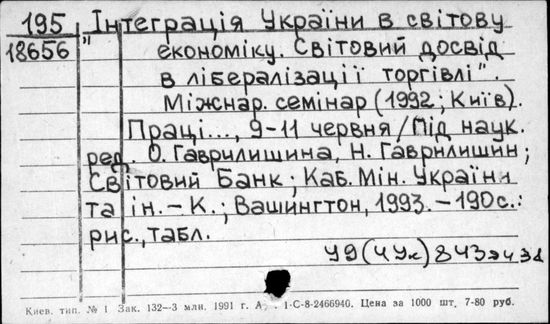 195
18656
"Інтеграція України в світову
економіку. Світовий досвід
в лібералізації торгівлі".
Міжнар. семінар (1992; Київ).
Праці..., 9-11 червня / Під наук.
ред. О. Гаврилишина, Н. Гаврилишин;
Світовий Банк; Каб. Мін. України
та ін. – К.; Вашингтон, 1993. – 190с.:
рис., табл.
У9(4Ук)843я431
Киев. тип. № 1 Зак. 132—3 млн. 1991 г. А 1-С-8-2466940. Цена за 1000 шт. 7-80 руб.